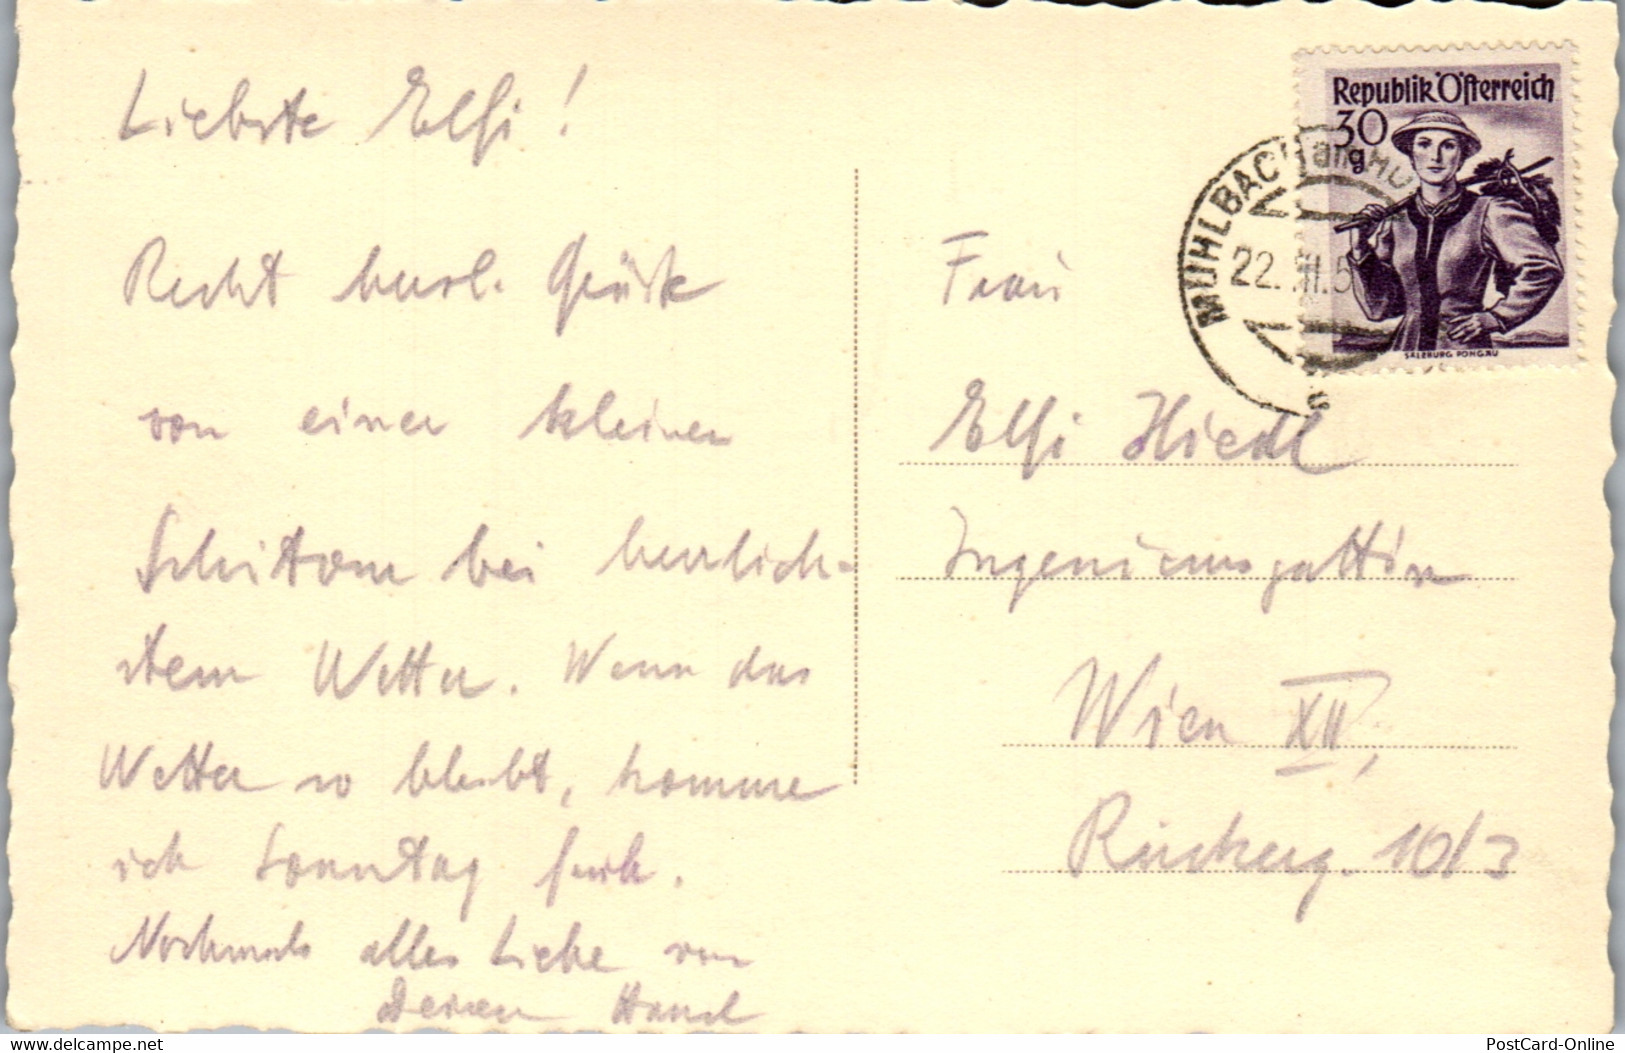 Liebste Elfi!
Recht herzl. Grüße
von einer kleinen
Schitour bei herrlich-
stem Wetter. Wenn das
Wetter so bleibt, komme
ich Sonntag früh.
Nochmals alles Liebe von
Deinem Hansl
Republik Österreich
30
g
SALZBURG PONGAU
MÜHLBACH am HO
22. II.5
Frau
Elfi Hiedl
Ingenieursgattin
Wien XII,
10/3
delcampe.net
PostCard-Online